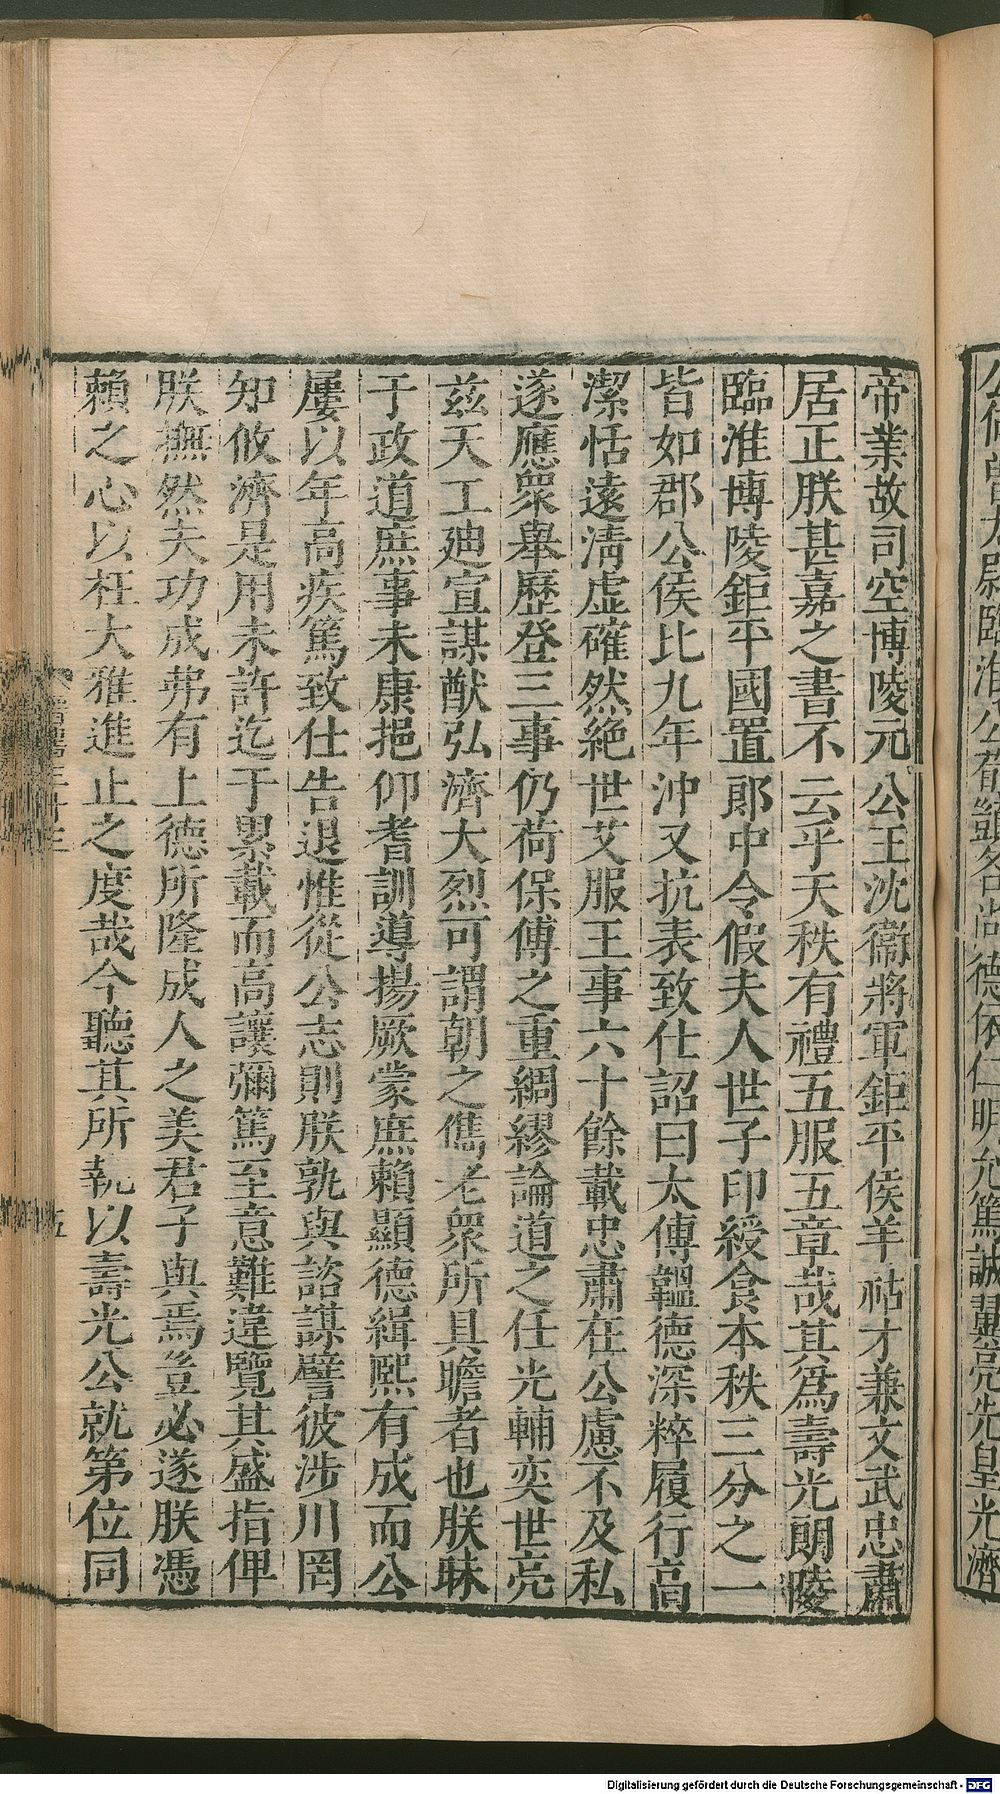 帝業故司空博陵元公王沈衞將軍鉅平侯羊祜才兼文武忠肅
居正朕甚嘉之書不云乎天秩有禮五服五章哉其爲壽光朗陵
臨淮博陵鉅平國置郞中令假夫人世子印綬食本秩三分之一
皆如郡公侯比九年沖又抗表致仕詔曰太傅韞德深粹履行高
潔恬遠淸虛確然絶世艾服王事六十餘載忠肅在公慮不及私
遂應衆舉歷登三事仍荷保傅之重綢繆論道之任光輔奕世亮
兹天工廸宣謀猷弘濟大烈可謂朝之儁老衆所具瞻者也朕昧
于政道庶事未康挹仰耆訓導揚厥蒙庶賴顯德緝熙有成而公
屢以年高疾篤致仕告退惟從公志則朕孰與諮謀譬彼涉川罔
知攸濟是用未許迄于累載而高讓彌篤至意難違覽其盛指俾
朕撫然夫功成弗有上德所隆成人之美君子與焉豈必遂朕憑
賴之心以枉大雅進止之度哉今聽其所執以壽光公就第位同
五
太尉臨淮公荀顗各尚德依仁明允篤誠翼亮先皇光濟
Digitalisierung gefördert durch die Deutsche Forschungsgemeinschaft - DFG